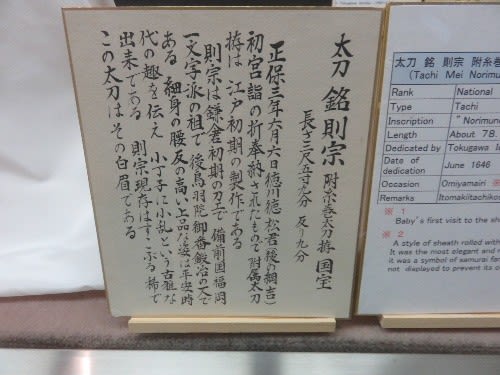 太刀 銘 則宗 附糸巻太刀拵 国宝
長さ二尺五寸九分 反り九分
正保三年六月六日徳川徳松君(後の綱吉)
初宮詣の折奉納されたもので附属太刀
拵は江戸初期の製作である
則宗は鎌倉初期の刀工で備前国福岡
一文字派の祖で後鳥羽院御番鍛冶の一人で
ある 細身の腰反の高い上品な姿は平安時
代の趣を伝え 小丁子に小乱という古雅な
出来である 則宗現存はすこぶる稀で
この太刀はその白眉である
太刀 銘 則宗 附糸巻
(Tachi Mei Norimu
Rank National
Type Tachi
Inscription "Norimun
Length About 78.
Dedicated by Tokugawa I
Date of dedication June 1646
Occasion Omiyamairi ※
Remarks Itomakitachiko
※ 1
Baby's first visit to the sh
※ 2
A style of sheath rolled with
It was the most elegant and
it was a symbol of samurai fa
not displayed to prevent its d